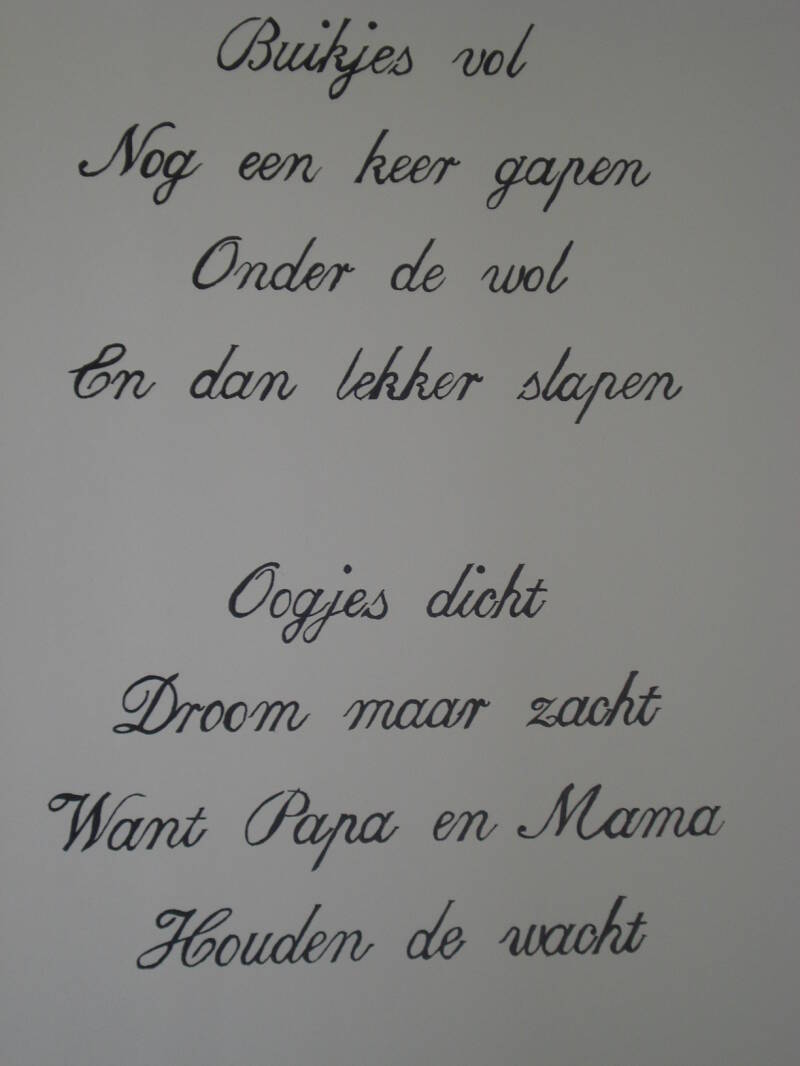 Buikjes vol
Nog een keer gapen
Onder de wol
En dan lekker slapen
Oogjes dicht
Droom maar zacht
Want Papa en Mama
Houden de wacht